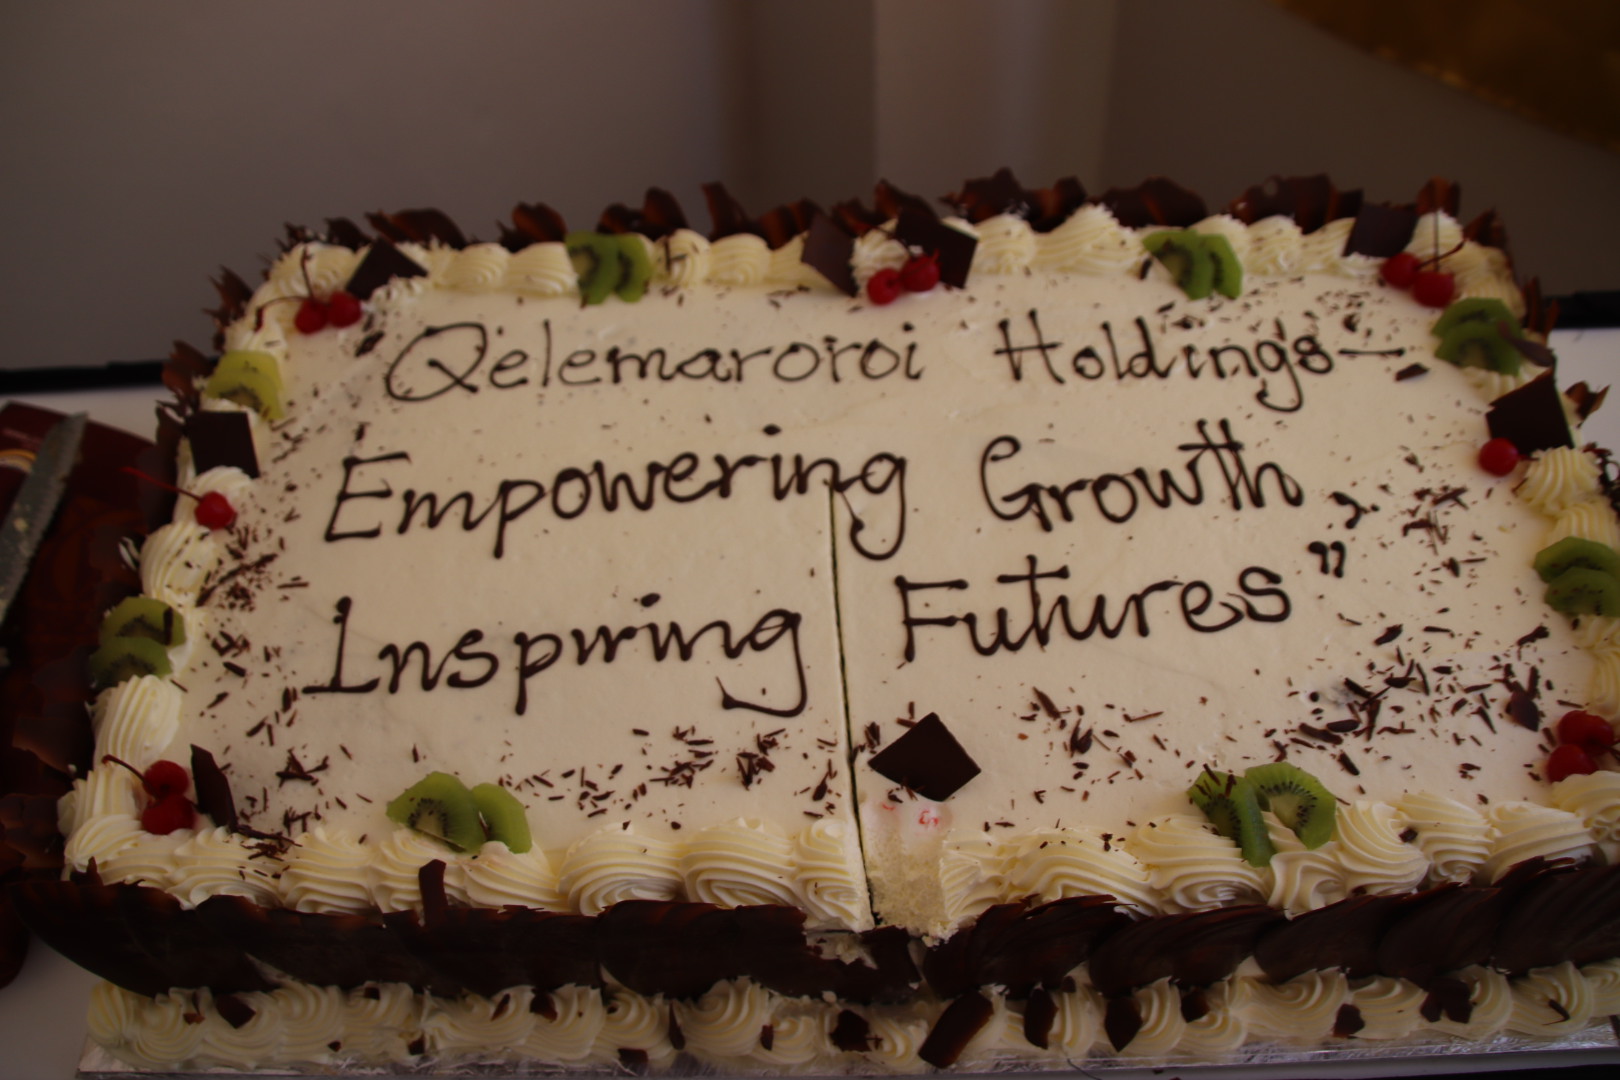 "Qelemaroroi Holdings-
Empowering Growth,
Inspiring Futures"